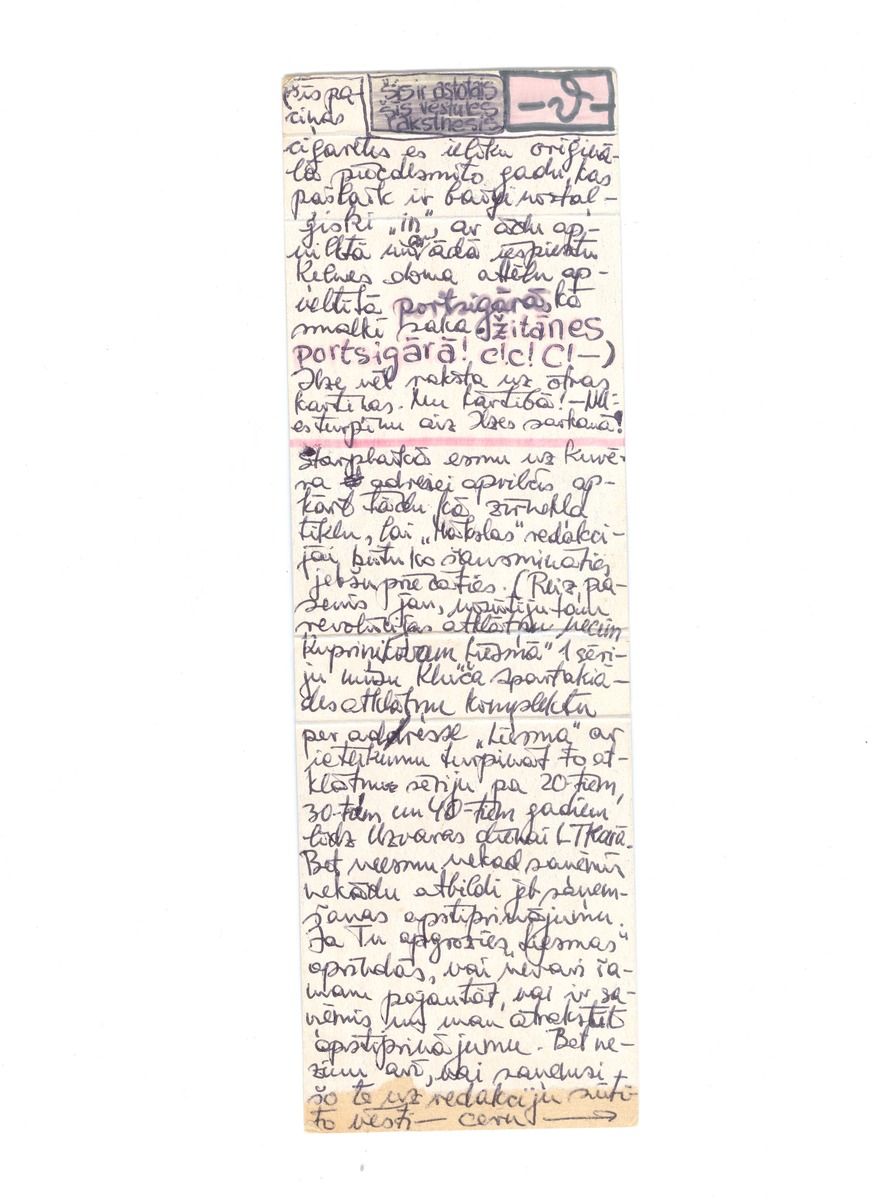 šīs pa-
ciņas
Šis ir astotais
šīs vēstules
rakstnesis
—8—
cigaretes es ieliku oriģinā-
lā piecdesmito gadu, kas
pašlaik ir baigi nostal-
ģiski „in”, ar ādu ap-
vilktā un ar ādā iespiestu
Ķelnes doma attēlu ap-
veltītā portsigārā kā
smalki saka džitānes
portsigārā! c!c! C!—)
Ilze vēl raksta uz otras
kartiņas. Nu kārtībā! — Nu
es turpinu aiz Ilzes sarkanā!
Starplaikā esmu uz kuvēr-
ta adresei aprībās ap-
kārt tādu kā zirnekļa
tīklu, lai „Mākslas” redakci-
jai būtu ko šausmināties
jebšu priecāties. (Reiz, pa-
sens jau, nosūtīju tam
revolūcijas atklātņu vecim
Kuprinikovam „Liesmā” 1 sēri-
ju mūsu Kluča spartakiā-
des atklātņu komplektu
per addresse „Liesma” ar
ieteikumu turpināt to at-
klātņu sēriju pa 20-tiem,
30-tiem un 40-tiem gadiem
līdz Uzvaras dienai LTKarā.
Bet neesmu nekad saņēmis
nekādu atbildi jeb saņem-
šanas apstiprinājumu.
Ja Tu apgrozies „Liesmas”
aprindās, vai nevari ša-
mam pajautāt, vai ir sa-
ņēmis un man atrakstīt
apstiprinājumu. Bet ne-
zinu arī, vai saņemsi
šo te uz redakciju sūtī-
to vēsti — ceru →